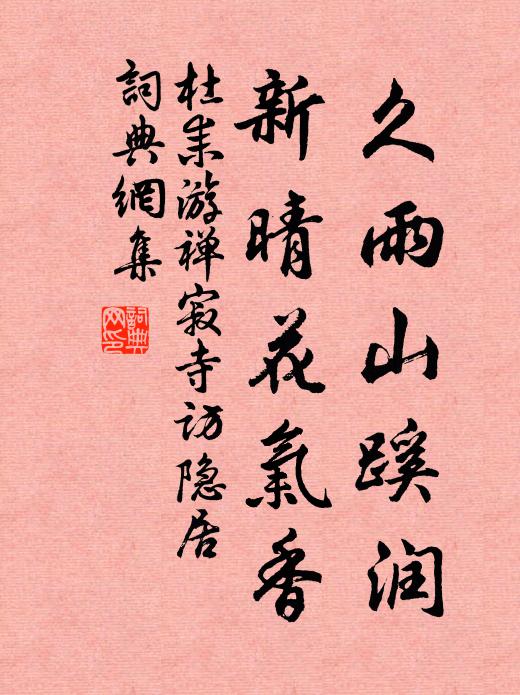 久雨山蹊润
新晴花氣香
杜耒游禅寂寺访隐居
詞典網集
詞典网印